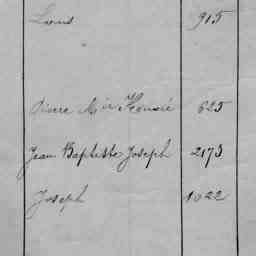 Louis 915
Pierre Mie Honoré 625
Jean Baptiste Joseph 2173
Joseph 1022